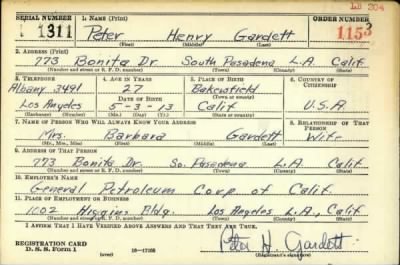 LB 204
SERIAL NUMBER 1. NAME (Print) ORDER NUMBER
1311 Peter Henry Gardett 1153
(First) (Middle) (Last)
2. ADDRESS (Print)
773 Bonita Dr. South Pasadena L.A. Calif.
(Number and street or R. F. D. number) (Town) (County) (State)
3. TELEPHONE 4. AGE IN YEARS 5. PLACE OF BIRTH 6. COUNTRY OF CITIZENSHIP
Albany 3491 27 Bakersfield
DATE OF BIRTH (Town or county)
Los Angeles 5-3-13 Calif U.S.A.
(Exchange) (Number) (Mo.) (Day) (Yr.) (State or country)
7. NAME OF PERSON WHO WILL ALWAYS KNOW YOUR ADDRESS 8. RELATIONSHIP OF THAT PERSON
Mrs. Barbara Gardett Wife
(Mr., Mrs., Miss) (First) (Middle) (Last)
9. ADDRESS OF THAT PERSON
773 Bonita Dr. So. Pasadena L.A. Calif
(Number and street or R. F. D. number) (Town) (County) (State)
10. EMPLOYER'S NAME
General Petroleum Corp. of Calif.
11. PLACE OF EMPLOYMENT OR BUSINESS
1002 Higgins Bldg. Los Angeles L.A., Calif
(Number and street or R. F. D. number) (Town) (County) (State)
I AFFIRM THAT I HAVE VERIFIED ABOVE ANSWERS AND THAT THEY ARE TRUE.
REGISTRATION CARD
D. S. S. Form 1 (over) Peter H. Gardett
(Registrant's signature)